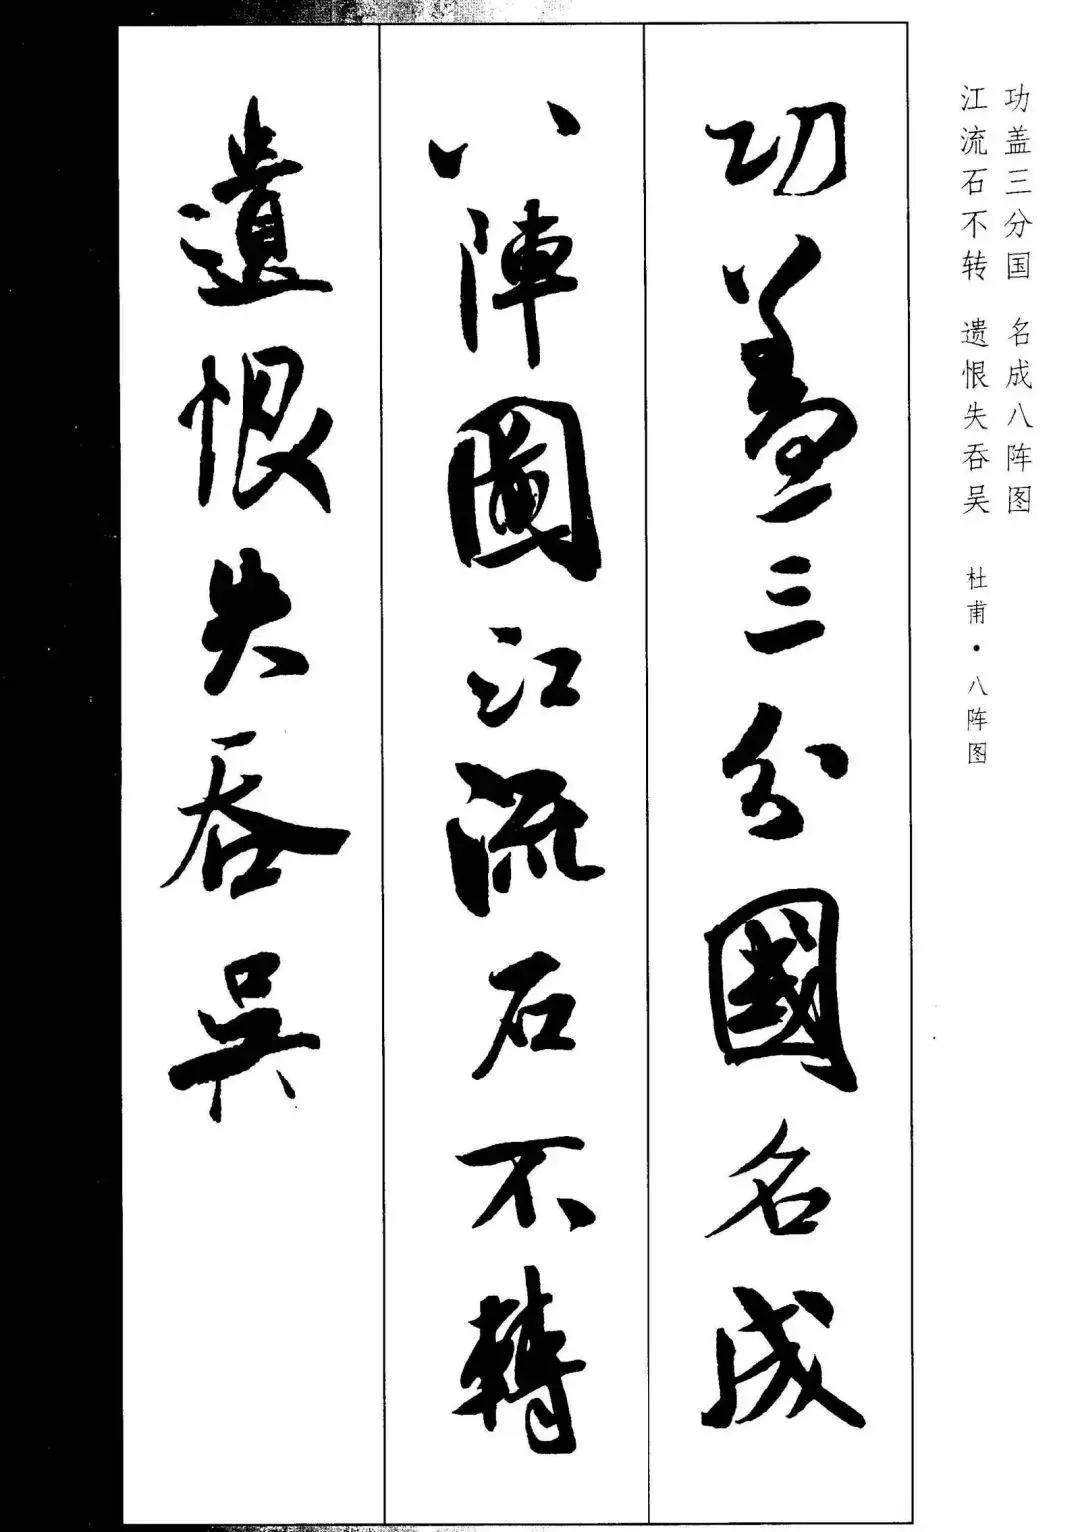 功盖三分国 名成八阵图
江流石不转 遗恨失吞吴
杜甫·八阵图
功蓋三分國名成
八陣圖江流石不轉
遺恨失吞吳